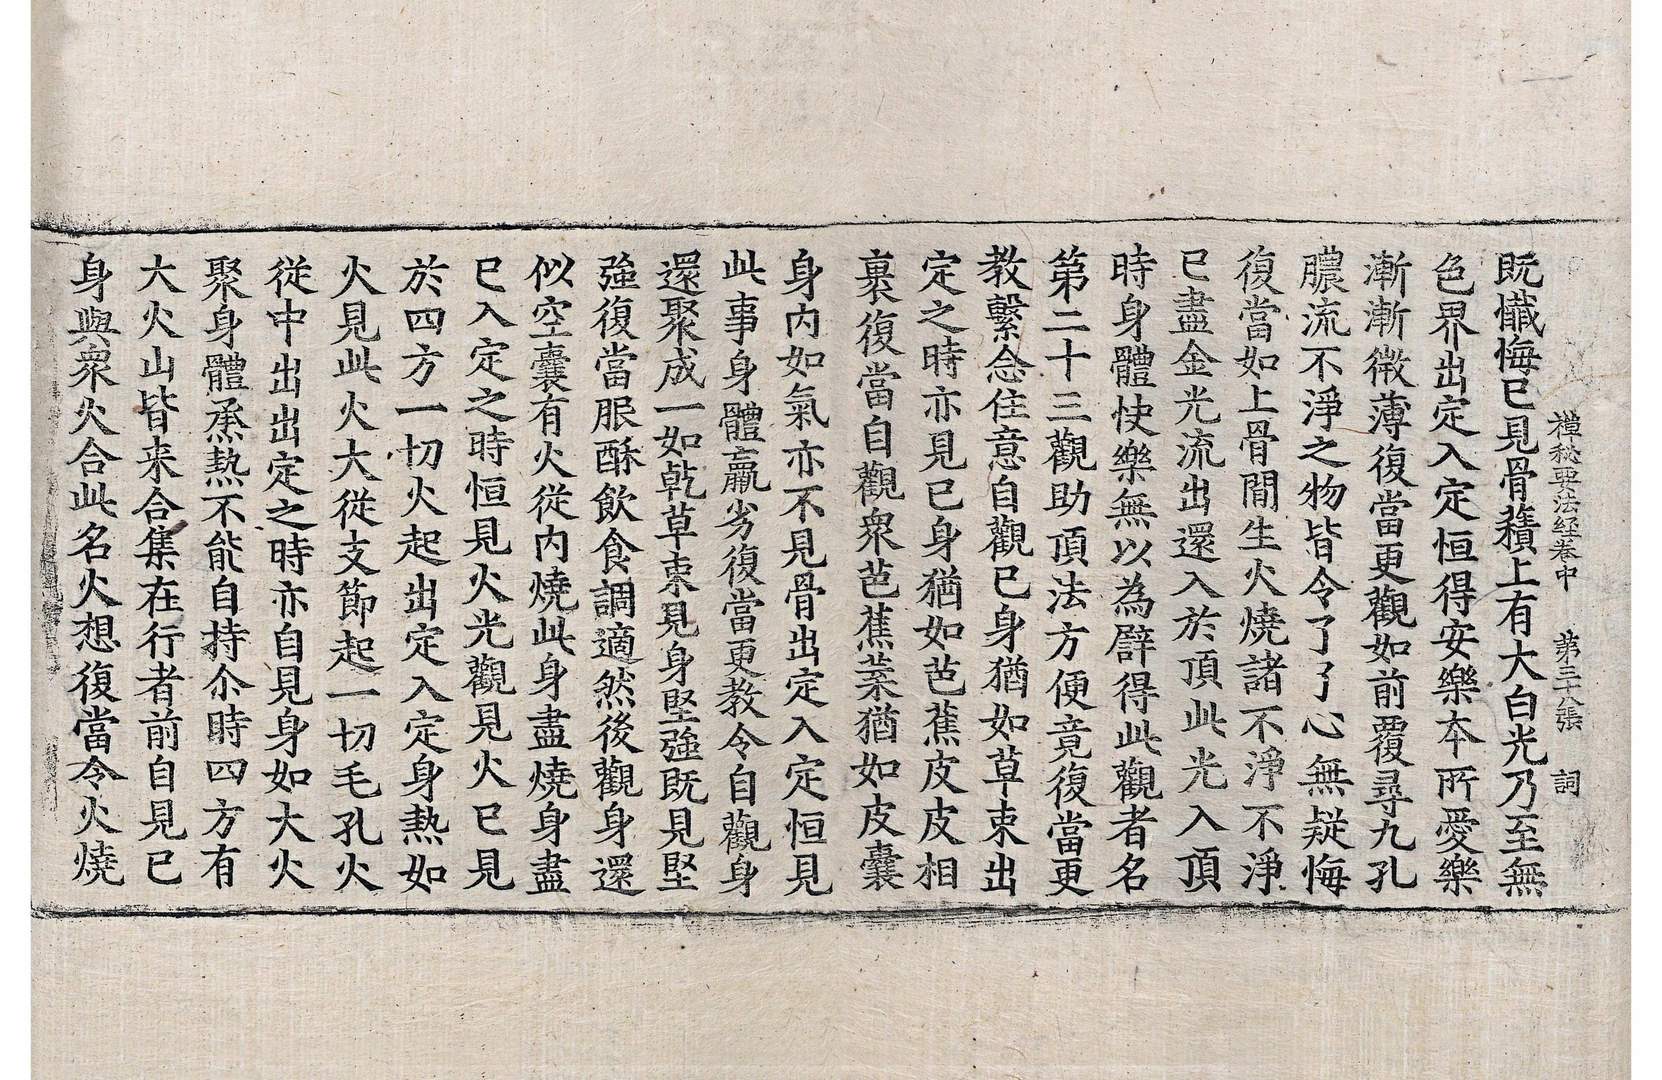 禪秘要法経卷中　第三十八張　詞
既懺悔已見骨積上有大白光乃至無
色界出定入定恒得安樂本所愛樂
漸漸微薄復當更觀如前覆尋九孔
膿流不淨之物皆令了了心無疑悔
復當如上骨間生火燒諸不淨不淨
已盡金光流出還入於頂此光入頂
時身體快樂無以為譬得此觀者名
第二十三觀助頂法方便竟復當更
教繫念住意自觀己身猶如草束出
定之時亦見己身猶如芭蕉皮皮相
裹復當自觀衆芭蕉葉猶如皮囊
身內如氣亦不見骨出定入定恒見
此事身體羸劣復當更教令自觀身
還聚成一如乾草束見身堅強既見堅
強復當服酥飲食調適然後觀身還
似空囊有火從內燒此身盡燒身盡
已入定之時恒見火光觀見火已見
於四方一切火起出定入定身熱如
火見此火大從支節起一切毛孔火
從中出出定之時亦自見身如大火
聚身體烝熱不能自持尒時四方有
大火山皆来合集在行者前自見己
身與衆火合此名火想復當令火燒